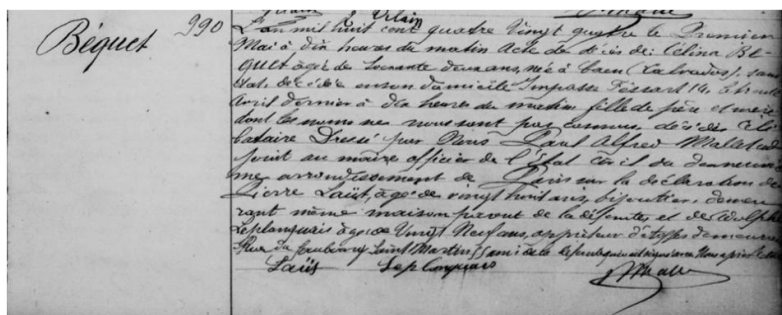 Béquet
990
L'an mil huit cent quatre vingt quatre le premier
Mai à dix heures du matin Acte de décès de: Célina BE-
QUET âgée de soixante deux ans, née à Caen (Calvados), sans
état, décédée en son domicile Impasse Fessart 14, le trente
Avril dernier à dix heures du matin fille de père et mère
dont les noms ne nous sont pas connus, décédés Céli-
bataire Dressé par Nous Paul Alfred ad
joint au maire officier de l'Etat Civil du dix neuviè
me arrondissement de Paris sur la déclaration de
Pierre Laüt, âgé de vingt huit ans, bijoutier, demeu
rant même maison parent de la défunte, et de Adolphe
Leplanquais âgé de Vingt Neuf ans, apprêteur d'étoffes demeurant
Rue du Faubourg Saint Martin, ami de la
Laüt Leplanquais